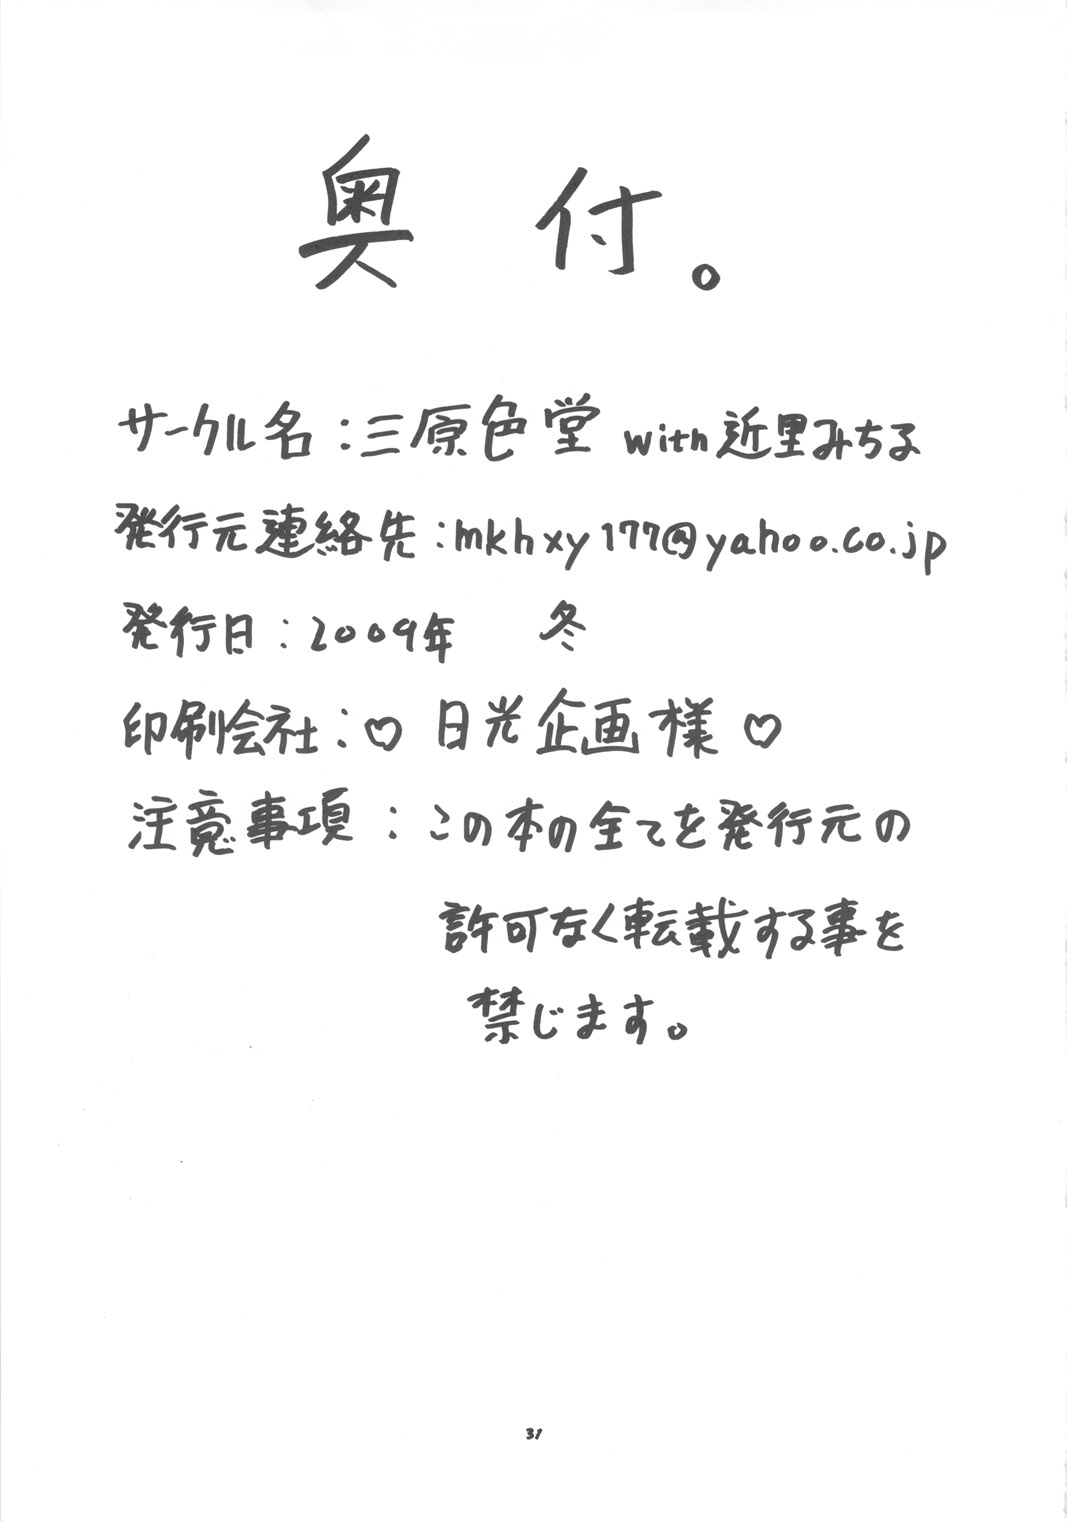 奥付。
サークル名:三原色堂 with 近里みちる
発行元連絡先:mkhxy177@yahoo.co.jp
発行日:2009年 冬
印刷会社:♡ 日光企画様 ♡
注意事項:この本の全てを発行元の
許可なく転載する事を
禁じます。
31